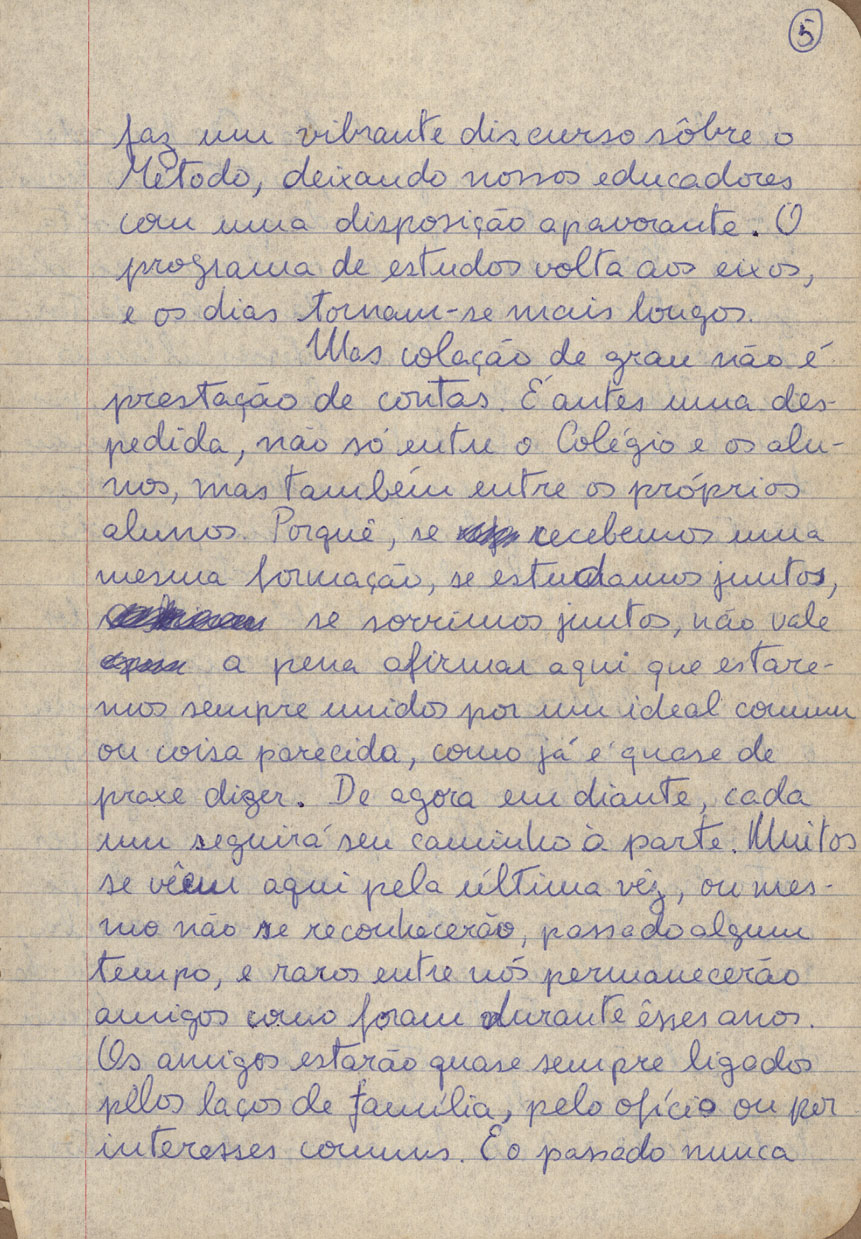 5
faz um vibrante discurso sôbre o
Método, deixando nossos educadores
com uma disposição apavorante. O
programa de estudos volta aos eixos,
e os dias tornam-se mais longos.
Mas colação de grau não é
prestação de contas. É antes uma des-
pedida, não só entre o Colégio e os alu-
nos, mas também entre os próprios
alunos. Porquê, se recebemos uma
mesma formação, se estudamos juntos,
se sorrimos juntos, não vale
a pena afirmar aqui que estare-
mos sempre unidos por um ideal comum
ou coisa parecida, como já é quase de
praxe dizer. De agora em diante, cada
um seguirá seu caminho à parte. Muitos
se vêem aqui pela última vêz, ou mes-
mo não se reconhecerão, passado algum
tempo, e raros entre nós permanecerão
amigos como foram durante êsses anos.
Os amigos estarão quase sempre ligados
pêlos laços de família, pelo ofício ou por
interesses comuns. E o passado nunca